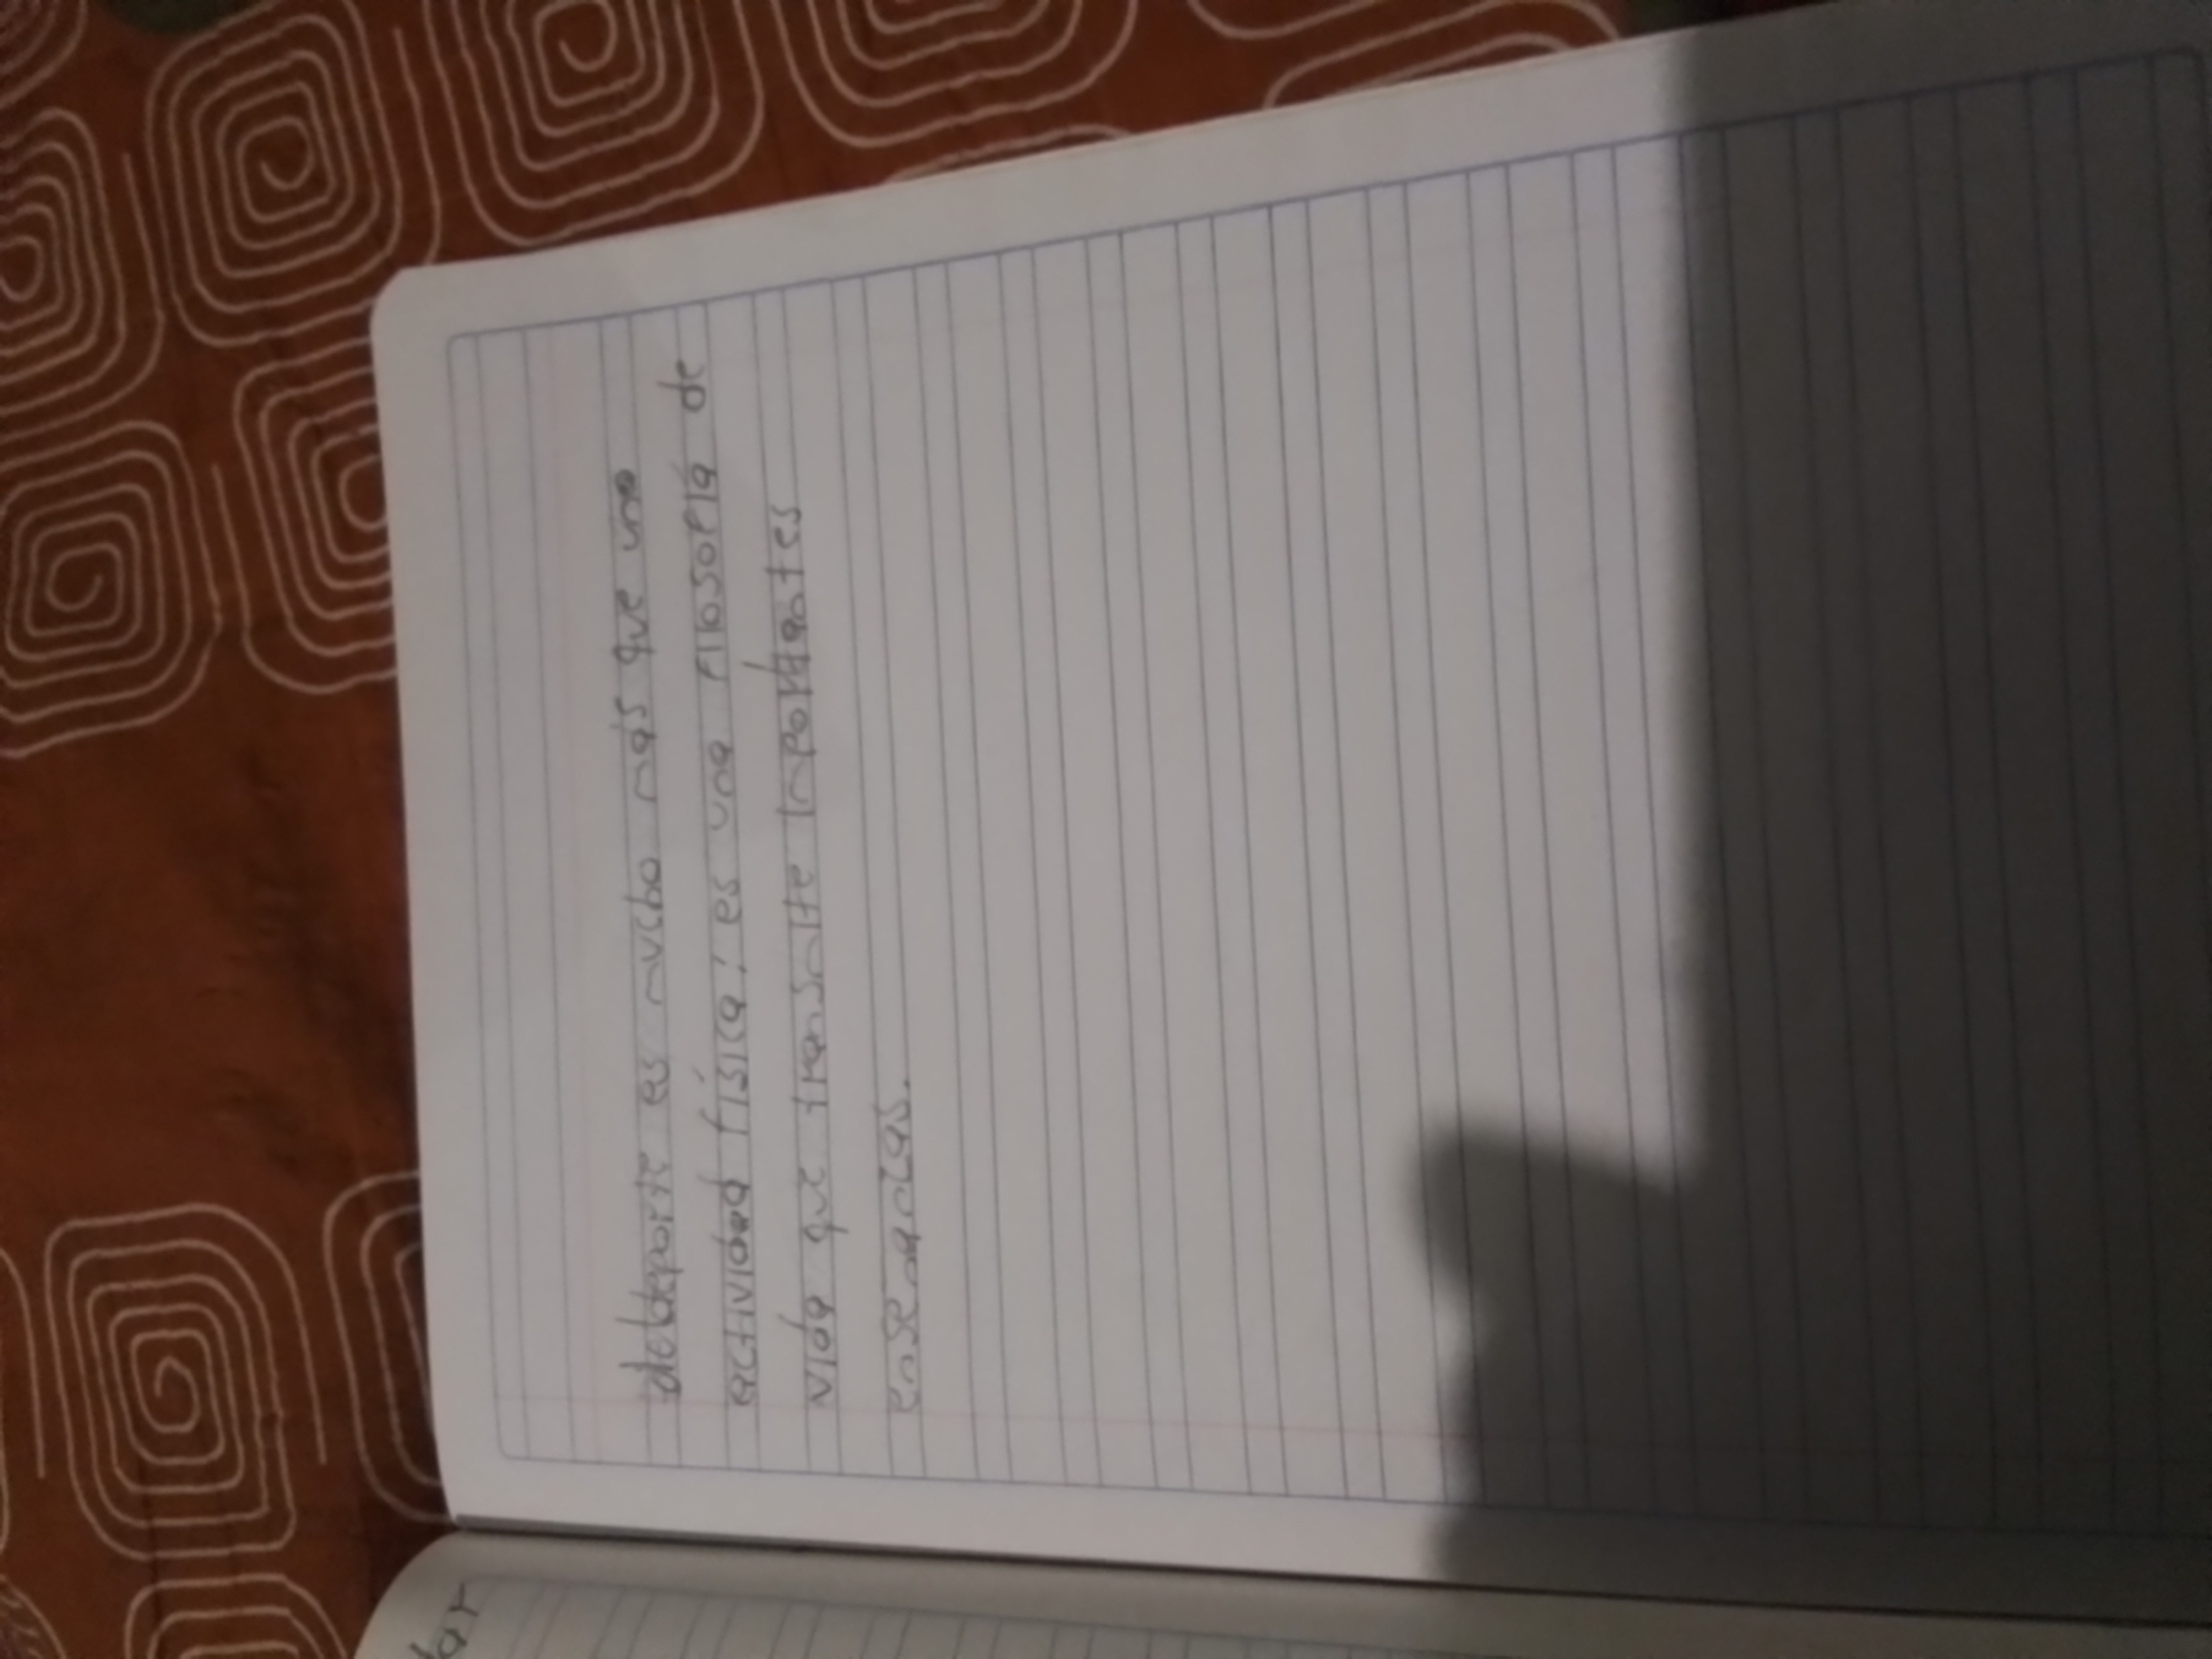 eldeporte es mucho más que una
actividad física: es una filosofía de
vida que transmite importantes
enseñanzas.